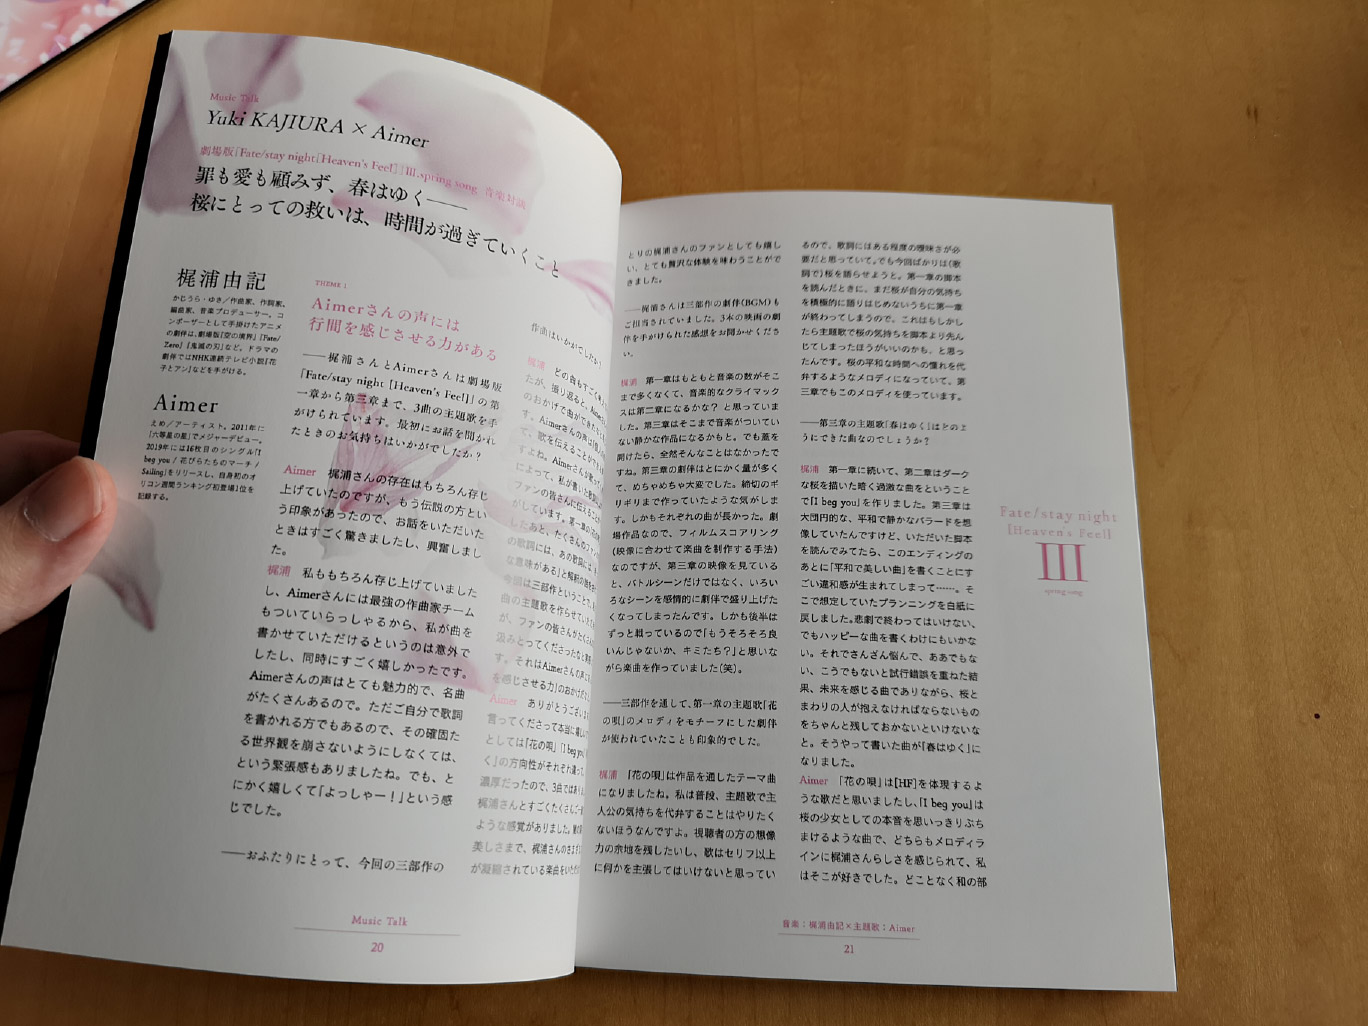 Music Talk
Yuki KAJIURA × Aimer
劇場版「Fate/stay night [Heaven's Feel]」Ⅲ.spring song 音楽対談
罪も愛も顧みず、春はゆく——
桜にとっての救いは、時間が過ぎていくこと
梶浦由記
かじうら・ゆき／作曲家、作詞家、
編曲家、音楽プロデューサー。コ
ンポーザーとして手掛けたアニメ
の劇伴は、劇場版『空の境界』『Fate/
Zero』『鬼滅の刃』など。ドラマの
劇伴ではNHK連続テレビ小説『花
子とアン』などを手がける。
Aimer
えめ／アーティスト。2011年に
「六等星の夜」でメジャーデビュー。
2019年には16枚目のシングル「I
beg you / 花びらたちのマーチ /
Sailing」をリリースし、自身初のオ
リコン週間ランキング初登場1位を
記録する。
THEME 1
Aimerさんの声には
行間を感じさせる力がある
——梶浦さんとAimerさんは劇場版
「Fate/stay night [Heaven's Feel]」の第
一章から第三章まで、3曲の主題歌を手
がけられています。最初にお話を聞かれ
たときのお気持ちはいかがでしたか？
Aimer　梶浦さんの存在はもちろん存じ
上げていたのですが、もう伝説の方とい
う印象があったので、お話をいただいた
ときはすごく驚きましたし、興奮しまし
た。
梶浦　私ももちろん存じ上げていました
し、Aimerさんには最強の作曲家チーム
もついていらっしゃるから、私が曲を
書かせていただけるというのは意外で
したし、同時にすごく嬉しかったです。
Aimerさんの声はとても魅力的で、名曲
がたくさんあるので。ただご自分で歌詞
を書かれる方でもあるので、その確固た
る世界観を崩さないようにしなくては、
という緊張感もありましたね。でも、と
にかく嬉しくて「よっしゃー！」という感
じでした。
——おふたりにとって、今回の三部作の
作曲はいかがでしたか？
梶浦　どの曲もすごく
たが、振り返ると、Aimer
のおかげで曲ができ
す。Aimerさんの声は
て、歌を伝えることが
すよね。Aimerさんが歌っ
によって、私が書いた歌詞
ファンの皆さんに伝える
がしています。第一章の
したあと、たくさんのファン
の歌詞には、あの歌詞には
な意味がある」と解釈の
今回は三部作ということで、
曲の主題歌を作らせていた
が、ファンの皆さんがたくさん
汲みとってくださったなと
す。それはAimerさんの声に
を感じさせる力」のおかげだと
Aimer　ありがとうございま
言ってくださって本当に嬉しい
としては「花の唄」「I beg you」
く」の方向性がそれぞれ違って、
濃厚だったので、3曲では
梶浦さんとすごくたくさんご一緒
ような感覚がありました。
美しさまで、梶浦さんのさまざま
が凝縮されている楽曲をいただ
Music Talk
20
とりの梶浦さんのファンとしても嬉し
い、とても贅沢な体験を味わうことがで
きました。
——梶浦さんは三部作の劇伴(BGM)も
ご担当されていました。3本の映画の劇
伴を手がけられた感想をお聞かせくださ
い。
梶浦　第一章はもともと音楽の数がそこ
まで多くなくて、音楽的なクライマック
スは第二章になるかな？ と思っていま
した。第三章はそこまで音楽がついてい
ない静かな作品になるかもと。でも蓋を
開けたら、全然そんなことはなかったで
すね。第三章の劇伴はとにかく量が多く
て、めちゃめちゃ大変でした。締切のギ
リギリまで作っていたような気がしま
す。しかもそれぞれの曲が長かった。劇
場作品なので、フィルムスコアリング
(映像に合わせて楽曲を制作する手法)
なのですが、第三章の映像を見ている
と、バトルシーンだけではなく、いろい
ろなシーンを感情的に劇伴で盛り上げた
くなってしまったんです。しかも後半は
ずっと戦っているので「もうそろそろ良
いんじゃないか、キミたち？」と思いな
がら楽曲を作っていました(笑)。
——三部作を通して、第一章の主題歌「花
の唄」のメロディをモチーフにした劇伴
が使われていたことも印象的でした。
梶浦　「花の唄」は作品を通したテーマ曲
になりましたね。私は普段、主題歌で主
人公の気持ちを代弁することはやりたく
ないほうなんですよ。視聴者の方の想像
力の余地を残したいし、歌はセリフ以上
に何かを主張してはいけないと思ってい
るので、歌詞にはある程度の曖昧さが必
要だと思っていて。でも今回ばかりは(歌
詞で)桜を語らせようと。第一章の脚本
を読んだときに、まだ桜が自分の気持ち
を積極的に語りはじめないうちに第一章
が終わってしまうので、これはもしかし
たら主題歌で桜の気持ちを脚本より先ん
じてしまったほうがいいのかも、と思っ
たんです。桜の平和な時間への憧れを代
弁するようなメロディになっていて、第
三章でもこのメロディを使っています。
——第三章の主題歌「春はゆく」はどのよ
うにできた曲なのでしょうか？
梶浦　第一章に続いて、第二章はダーク
な桜を描いた暗く過激な曲をということ
で「I beg you」を作りました。第三章は
大団円的な、平和で静かなバラードを想
像していたんですけど、いただいた脚本
を読んでみてたら、このエンディングの
あとに「平和で美しい曲」を書くことにす
ごい違和感が生まれてしまって……。そ
こで想定していたプランニングを白紙に
戻しました。悲劇で終わってはいけない、
でもハッピーな曲を書くわけにもいかな
い。それでさんざん悩んで、ああでもな
い、こうでもないと試行錯誤を重ねた結
果、未来を感じる曲でありながら、桜と
まわりの人が抱えなければならないもの
をちゃんと残しておかないといけないな
と。そうやって書いた曲が「春はゆく」に
なりました。
Aimer　「花の唄」は[HF]を体現するよ
うな歌だと思いましたし、「I beg you」は
桜の少女としての本音を思いっきりぶち
まけるような曲で、どちらもメロディラ
インに梶浦さんらしさを感じられて、私
はそこが好きでした。どことなく和の部
Fate/stay night
[Heaven's Feel]
Ⅲ
spring song
音楽：梶浦由記×主題歌：Aimer
21